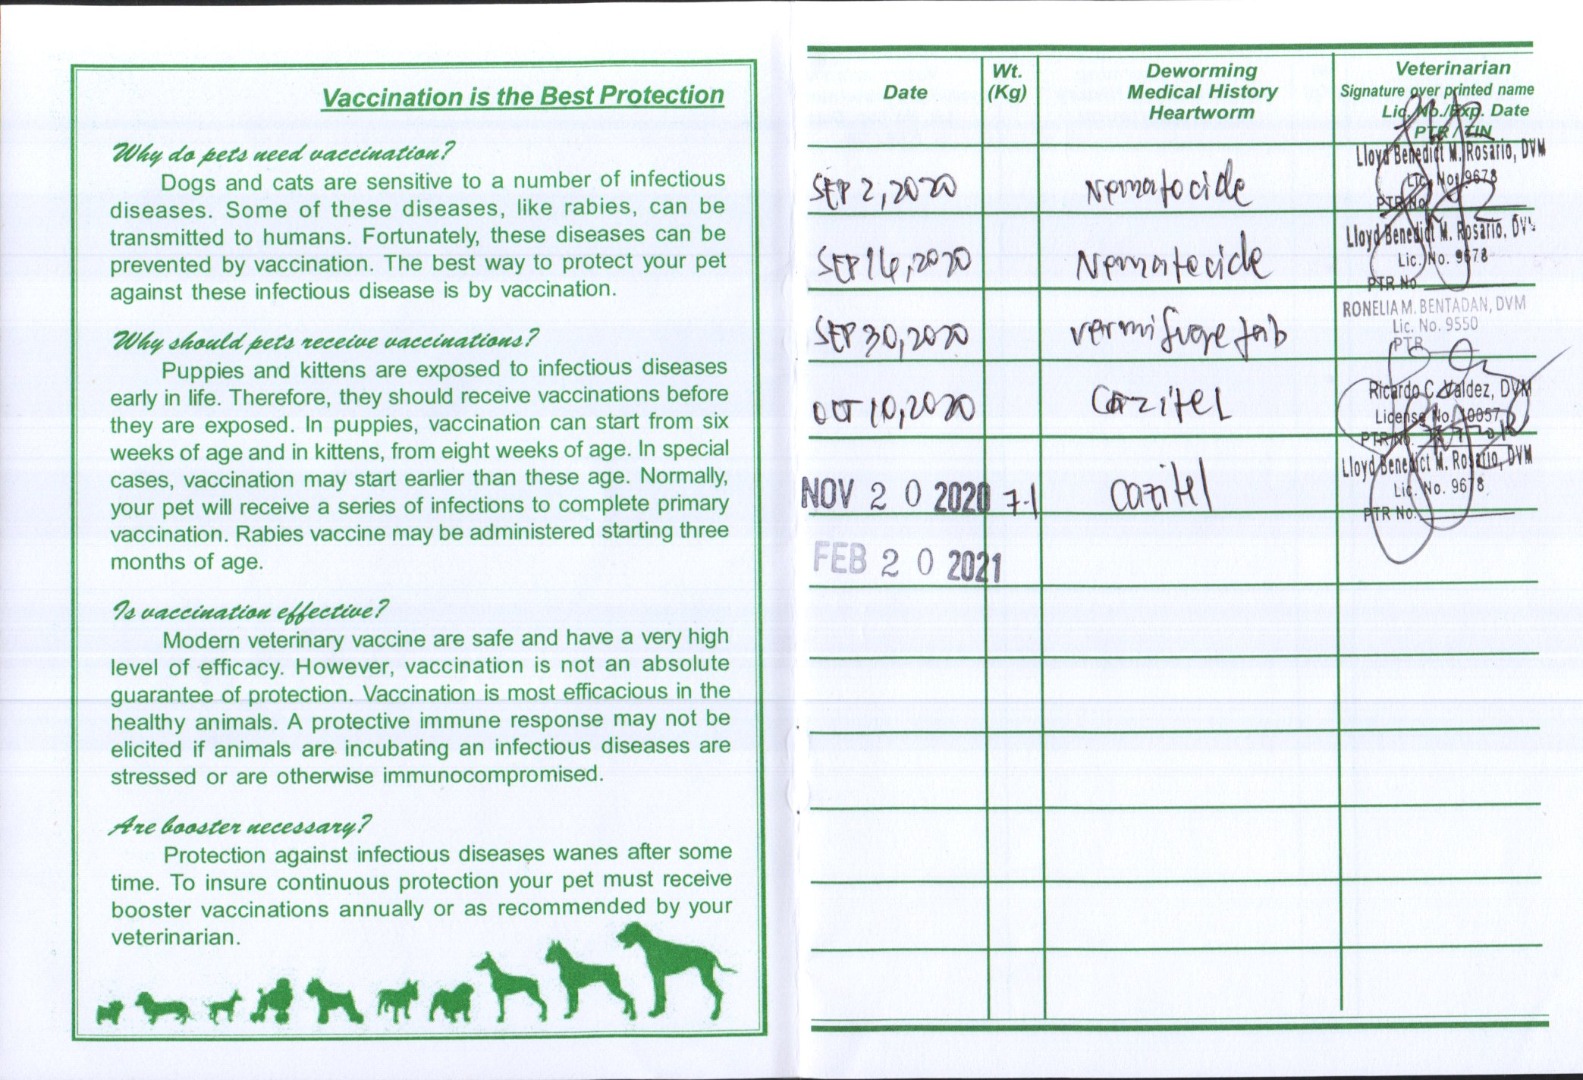 Vaccination is the Best Protection
Why do pets need vaccination?
Dogs and cats are sensitive to a number of infectious
diseases. Some of these diseases, like rabies, can be
transmitted to humans. Fortunately, these diseases can be
prevented by vaccination. The best way to protect your pet
against these infectious disease is by vaccination.
Why should pets receive vaccinations?
Puppies and kittens are exposed to infectious diseases
early in life. Therefore, they should receive vaccinations before
they are exposed. In puppies, vaccination can start from six
weeks of age and in kittens, from eight weeks of age. In special
cases, vaccination may start earlier than these age. Normally,
your pet will receive a series of infections to complete primary
vaccination. Rabies vaccine may be administered starting three
months of age.
Is vaccination effective?
Modern veterinary vaccine are safe and have a very high
level of efficacy. However, vaccination is not an absolute
guarantee of protection. Vaccination is most efficacious in the
healthy animals. A protective immune response may not be
elicited if animals are incubating an infectious diseases are
stressed or are otherwise immunocompromised.
Are booster necessary?
Protection against infectious diseases wanes after some
time. To insure continuous protection your pet must receive
booster vaccinations annually or as recommended by your
veterinarian.
Date
Wt.
(Kg)
Deworming
Medical History
Heartworm
Veterinarian
Signature over printed name
Lic. No./Exp. Date
PTR / TIN
SEP 2, 2020
Nematocide
Lloyd Benedict M. Rosario, DVM
Lic. No. 9678
PTR No
SEP 16, 2020
Nematocide
Lloyd Benedict M. Rosario, DVM
Lic. No. 9678
PTR No
SEP 30, 2020
vermifuge tab
RONELIA M. BENTADAN, DVM
Lic. No. 9550
PTR
OCT 10, 2020
Cazitel
Ricardo C. Valdez, DVM
License No. 10057
PTR No.
NOV 20 2020
7.1
Cazitel
Lloyd Benedict M. Rosario, DVM
Lic. No. 9678
PTR No.
FEB 20 2021